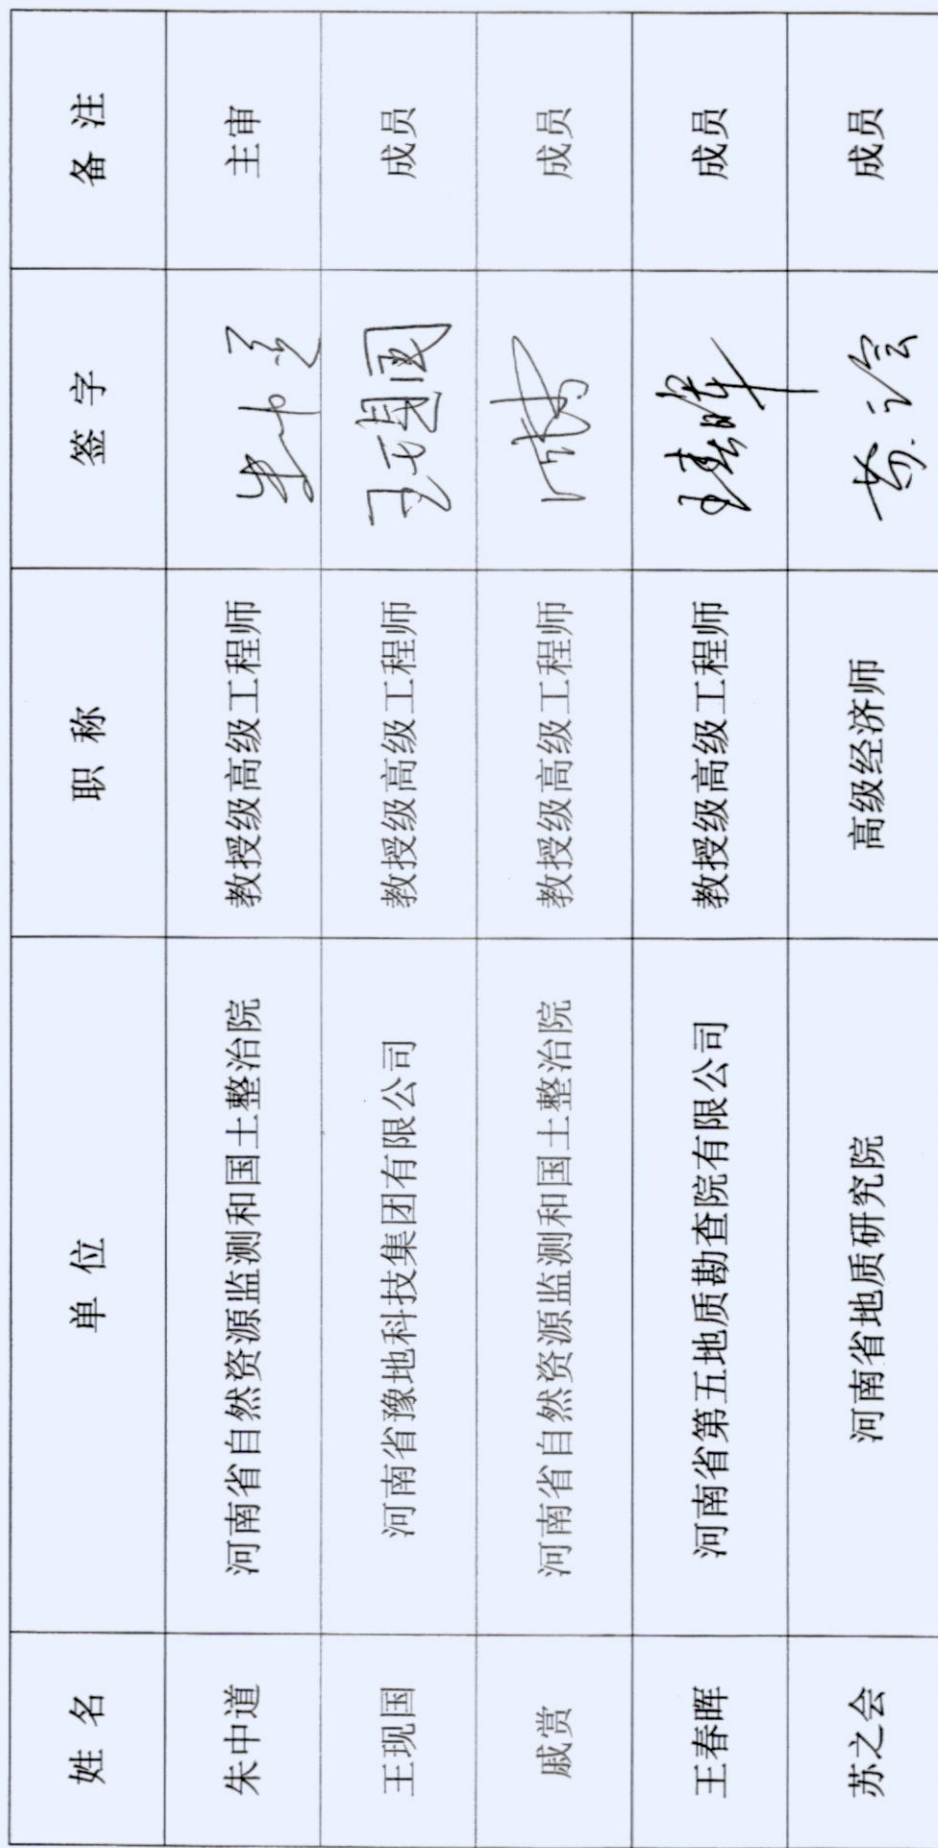 姓 名 单 位 职 称 签 字 备 注
朱中道 河南省自然资源监测和国土整治院 教授级高级工程师 朱中道 主审
王现国 河南省豫地科技集团有限公司 教授级高级工程师 王现国 成员
戚赏 河南省自然资源监测和国土整治院 教授级高级工程师 成员
王春晖 河南省第五地质勘查院有限公司 教授级高级工程师 王春晖 成员
苏之会 河南省地质研究院 高级经济师 苏之会 成员